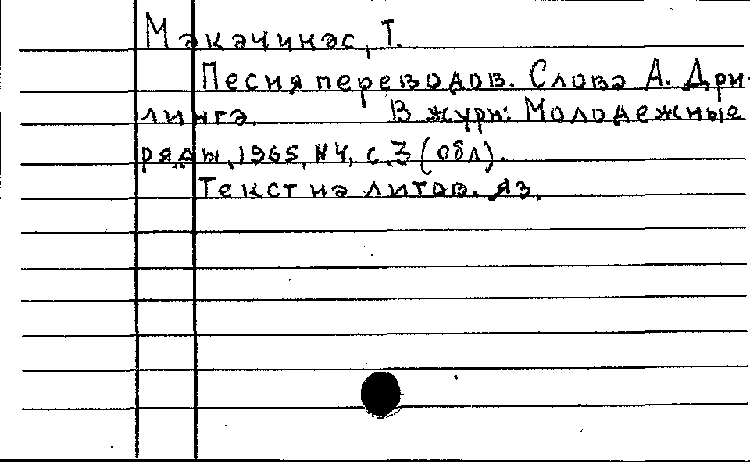 Макачинас, Т.
Песня переводов. Слова А. Дри-
линга. В журн: Молодежные
ряды, 1965, №4, с.3 (обл).
Текст на литов. яз.